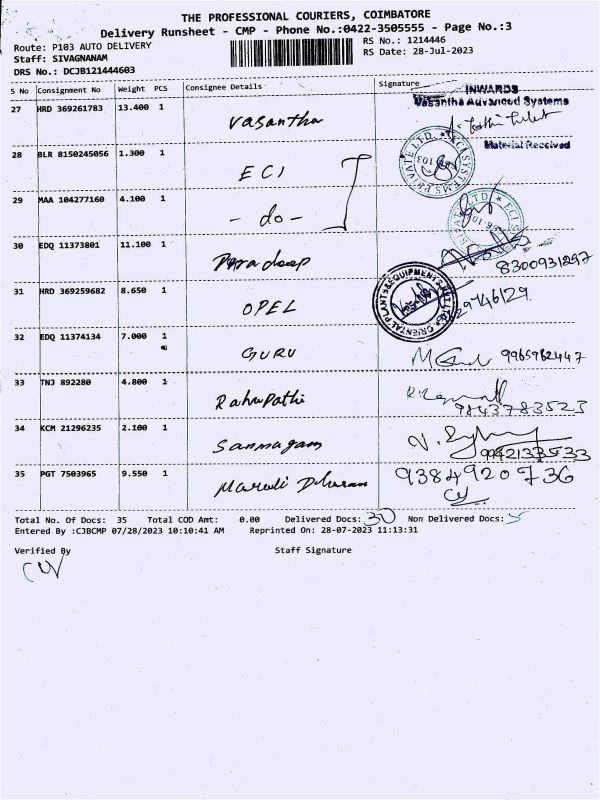 THE PROFESSIONAL COURIERS, COIMBATORE
Delivery Runsheet - CMP - Phone No.:0422-3505555 - Page No.:3
Route: P103 AUTO DELIVERY
RS No.: 1214446
Staff: SIVAGNANAM
RS Date: 28-Jul-2023
DRS No.: DCJB121444603
S No Consignment No Weight PCS Consignee Details Signature
INWARDS
Vasantha Advanced Systems
27 HRD 369261783 13.400 1 Vasantha
Material Received
28 BLR 8150245056 1.300 1 ECI
29 MAA 104277160 4.100 1 - do -
30 EDQ 11373801 11.100 1 Pradeep 8300931897
31 HRD 369259682 8.650 1 OPEL
ORIENTAL PLANTS & EQUIPMENTS
32 EDQ 11374134 7.000 1 GURU 9965962447
33 TNJ 892280 4.800 1 Rahupathi 9843783523
34 KCM 21296235 2.100 1 Sanmugam
35 PGT 7503965 9.550 1 9384920736
Total No. Of Docs: 35 Total COD Amt: 0.00 Delivered Docs: 30 Non Delivered Docs: 5
Entered By :CJBCMP 07/28/2023 10:10:41 AM Reprinted On: 28-07-2023 11:13:31
Verified By Staff Signature